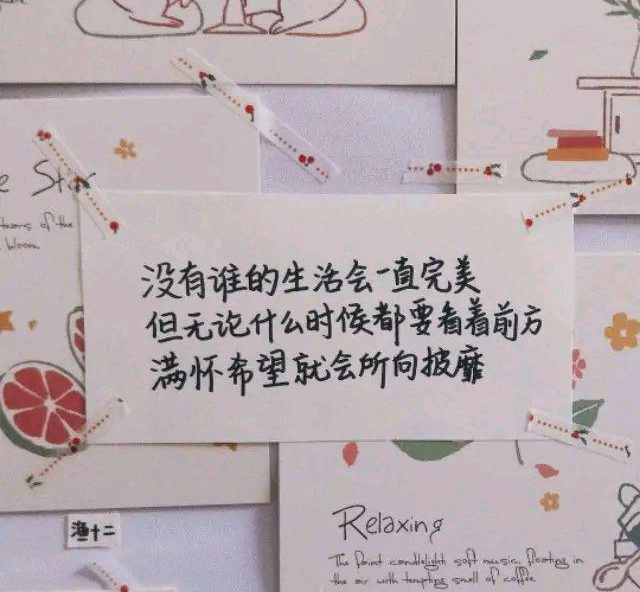 Star
tears of the
bloom
没有谁的生活会一直完美
但无论什么时候都要看着前方
满怀希望就会所向披靡
渔十二
Relaxing
The faint candlelight, soft music, floating in
the air with tempting smell of coffee